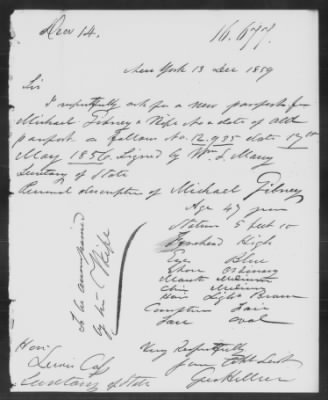 Dec 14.
16.677.
New York 13 Dec 1859
Sir
I respectfully ask for a new passport for
Michael Gibney & Wife No & date of old
passport as follows No. 12.935 date 17th
May 1856. Signed by Wm L. Marcy
Secretary of State
Personal description of Michael Gibney
Age 47 years
Stature 5 feet 10
Forehead High
Eyes Blue
Nose Ordinary
Mouth Medium
Chin Medium
Hair Light Brown
Complexion Fair
Face Oval
to be accompanied
by his Wife
Very Respectfully
Your Obt Servt
Hon:
Lewis Cass
Secretary of State